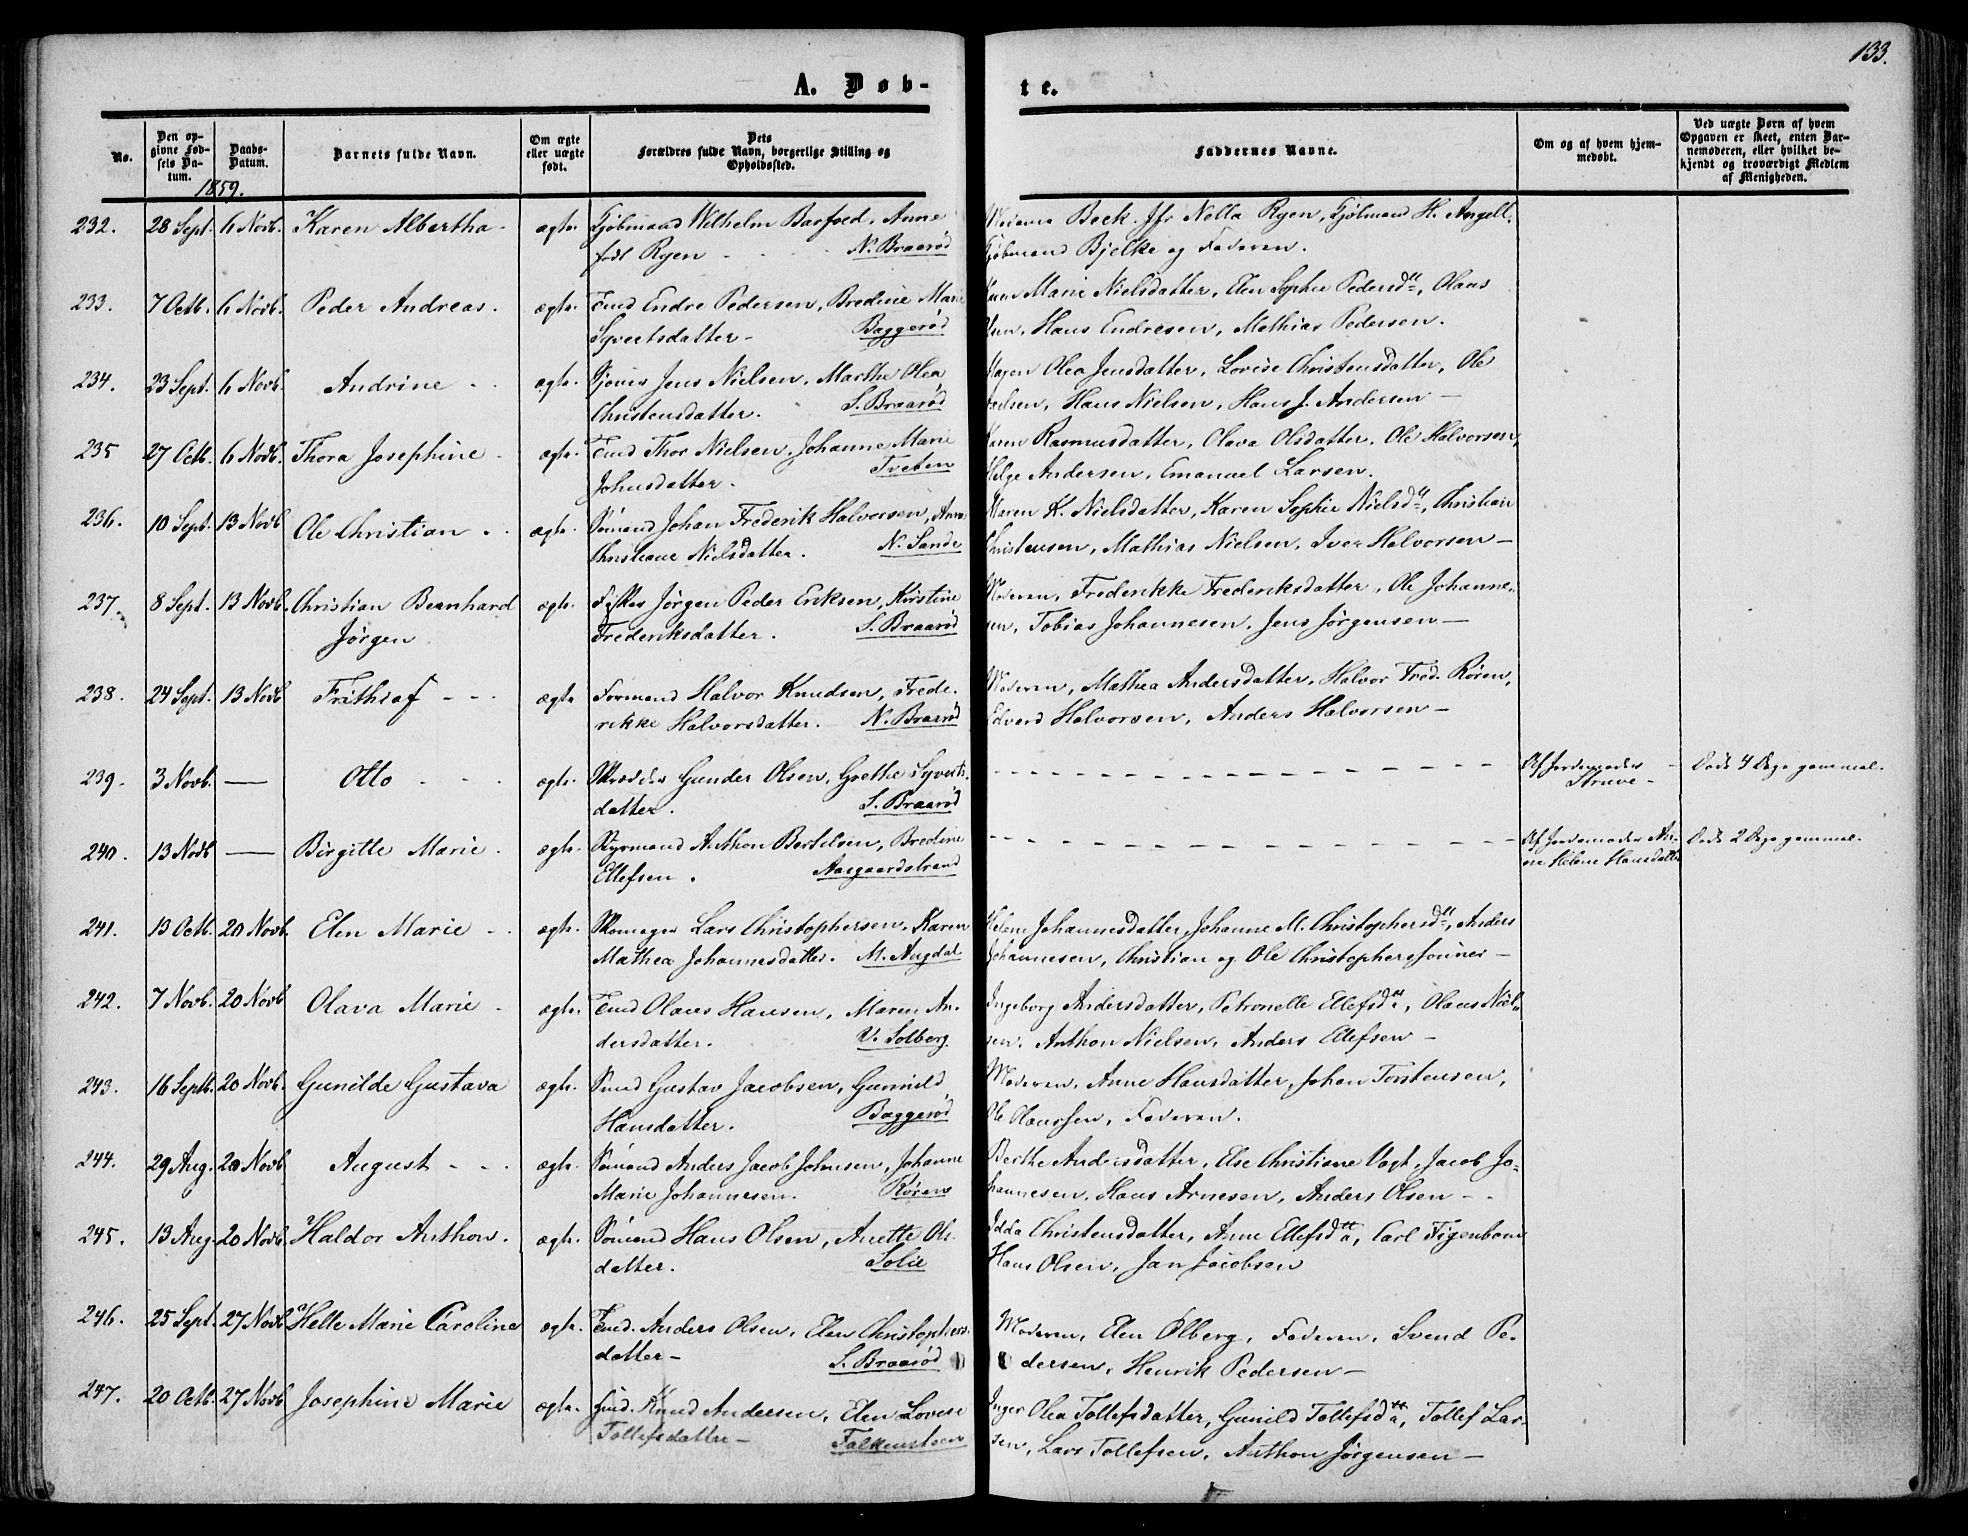 133.
A. Døb-
te.
No.
Den op-
givne Fød-
sels Da-
tum.
Daabs-
Datum.
Barnets fulde Navn.
Om ægte
eller uægte
født.
Dets
Forældres fulde Navn, borgerlige Stilling og
Opholdssted.
Faddernes Navne.
Om og af hvem hjem-
medøbt.
Ved uægte Børn af hvem
Opgaven er skeet, enten Bar-
nemoderen, eller hvilket be-
kjendt og troværdigt Medlem
af Menigheden.
1859.
232. 28 Sept. 6 Novb. Karen Albertha - ægte. Kjøbmand Wilhelm Barfoed, Anne
født Ryen - N. Braarød
Madame Beck, Jfr Nella Ryen, Kjøbmand H. Angell,
Kjøbmand Bjelke og Faderen.
233. 7 Octb. 6 Novb. Peder Andreas. ægte. Tmd Endre Pedersen, Bredine Marie
Syvertsdatter - Baggerød
Marie Nielsdatter, Elen Sophie Pedersdtr, Olaus
Hans Endresen, Mathias Pedersen.
234. 23 Sept. 6 Novb. Andrine - ægte. Jens Nielsen, Marthe Olea
Christensdatter. S. Braarød
Maren Olea Jensdatter, Lovise Christensdatter, Ole
Hans Nielsen, Hans J. Andersen -
235 27 Octb. 6 Novb. Thora Josephine - ægte. Tmd Thor Nielsen, Johanne Marie
Johnsdatter. Tveten
Karen Rasmusdatter, Olava Olsdatter, Ole Halvorsen,
Helge Andersen, Emanuel Larsen.
236. 10 Sept. 13 Novb Ole Christian. ægte. Sømand Johan Frederik Halvorsen, Anne
Christiane Nielsdatter. N. Sande
Maren K. Nielsdatter, Karen Sophie Nielsdtr, Christian
Christensen, Mathias Nielsen, Iver Halvorsen -
237. 8 Sept. 13 Novb. Christian Bernhard ægte. Fisker Jørgen Peder Eriksen, Kirstine
Jørgen Frederiksdatter. S. Braarød
Moderen, Frederikke Frederiksdatter, Ole Johanne-
sen, Tobias Johannesen, Jens Jørgensen -
238. 24 Sept. 13 Novb Frithiof - - ægte Formand Halvor Knudsen, Frede-
rikke Halvorsdatter. N. Braarød
Moderen, Mathea Andersdatter, Halvor Fred. Røren,
Edvard Halvorsen, Anders Halvorsen -
239. 3 Novb. — Otto - - ægte. Skrædder Gunder Olsen, Grethe Syverts-
datter. S. Braarød
Af Jordemoder
Struve
Døde 4 Dage gammel.
240. 13 Novb — Birgitte Marie. ægte. Styrmand Anthon Bertelsen, Bredine
Ellefsen. Aasgaardstrand
Af Jordemoder An-
ne Helene Hansdatter
Døde 2 Dage gammel.
241. 13 Octb. 20 Novb. Elen Marie - - ægte. Skomager Lars Christophersen, Karen
Mathea Johannesdatter. M. Augdal
Helene Johannesdatter, Johanne M. Christophersdtr, Anders
Johannesen, Christian og Ole Christopherssønner -
242. 7 Novb. 20 Novb Olava Marie - ægte. Tmd Olaus Hansen, Maren An-
dersdatter. V. Solberg
Ingeborg Andersdatter, Petronelle Ellefsdtr, Olaus Niel-
sen, Anthon Nielsen, Anders Ellefsen -
243. 16 Sept. 20 Novb. Gunilde Gustava ægte. Smed Gustav Jacobsen, Gunnild
Hansdatter. Baggerød
Moderen, Anne Hansdatter, Johan Torstensen,
Ole Olaussen, Faderen.
244. 29 Aug. 20 Novb August - - - ægte. Sømand Anders Jacob Johnsen, Johanne
Marie Johannesen. Røren
Berthe Andersdatter, Else Christiane Vogt, Jacob Jo-
hannesen, Hans Arnesen, Anders Olsen - -
245. 13 Aug. 20 Novb. Haldor Anthon. ægte. Sømand Hans Olsen, Anette Ols-
datter. Solie
Idda Christensdatter, Anne Ellefsdtr, Carl Figenbom
Hans Olsen, Jan Jacobsen
246. 25 Sept. 27 Novb. Helle Marie Caroline ægte. Tmd. Anders Olsen, Elen Christophers-
datter - S. Braarød
Moderen, Elen Ølberg, Faderen, Svend Pe-
dersen, Henrik Pedersen -
247. 20 Octb. 27 Novb Josephine Marie ægte. Knud Andersen, Elen Lovise
Tollefsdatter - Falkensteen
Inger Olea Tollefsdatter, Gunild Tollefsdtr, Tollef Lar-
sen, Lars Tollefsen, Anthon Jørgensen -